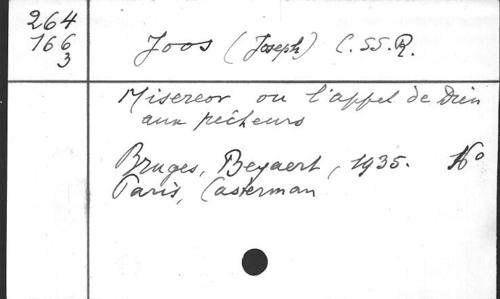 264
166
3
Joos (Joseph) C.SS.R.
Misereor ou l'appel de Dieu
aux pécheurs
Bruges, Beyaert, 1935. 16°
Paris, Casterman